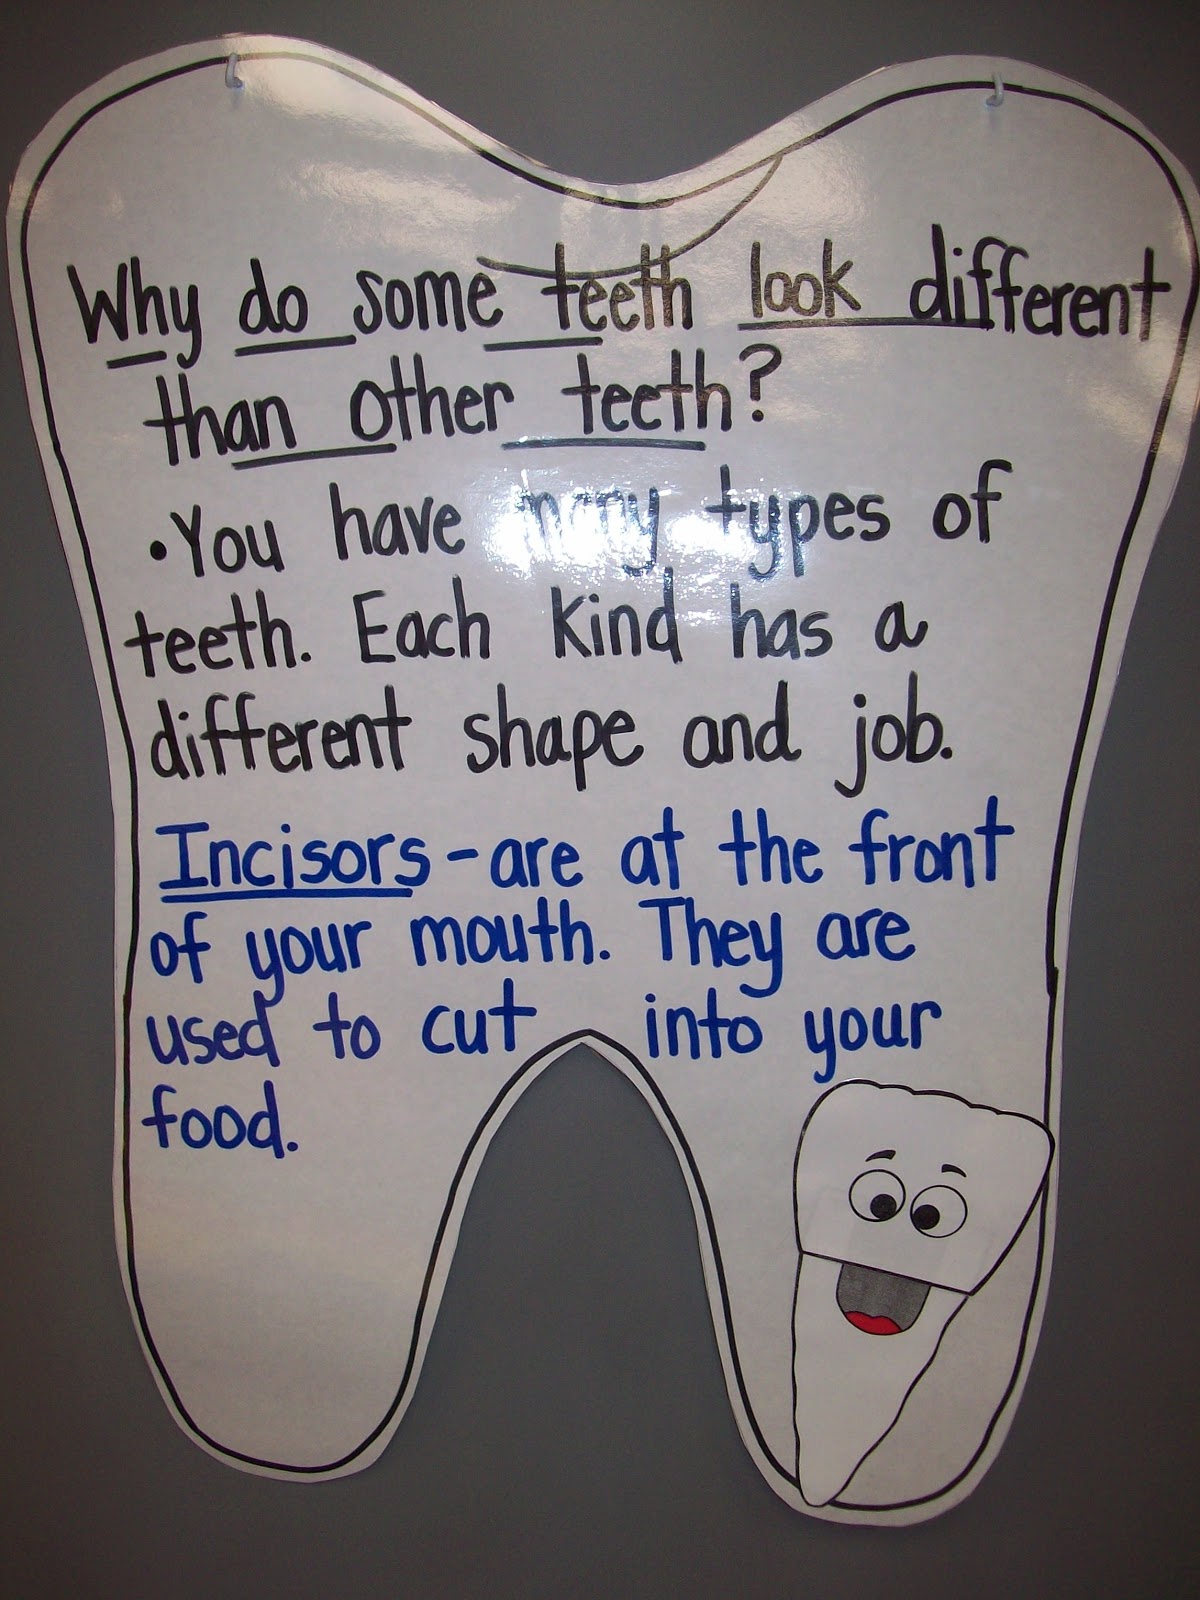 Why do some teeth look different
than other teeth?
•You have many types of
teeth. Each kind has a
different shape and job.
Incisors - are at the front
of your mouth. They are
used to cut into your
food.